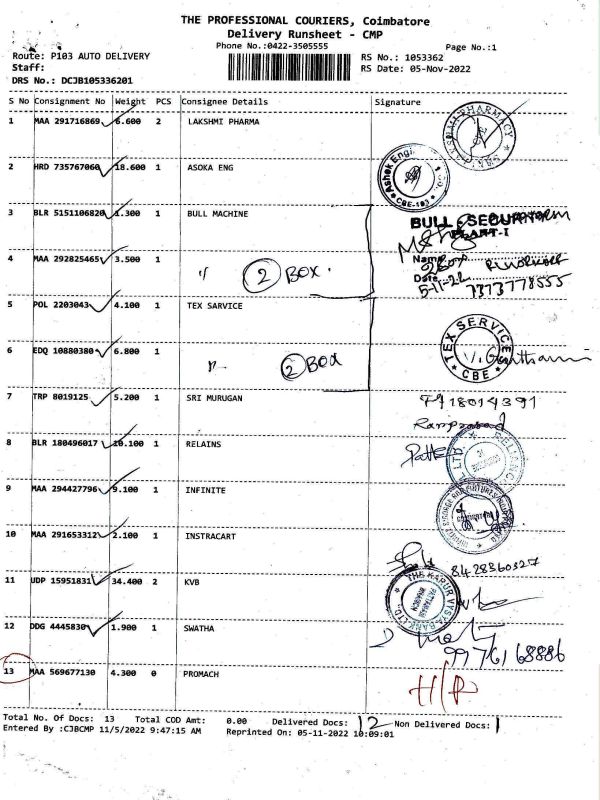 THE PROFESSIONAL COURIERS, Coimbatore
Delivery Runsheet - CMP
Phone No.:0422-3505555 Page No.:1
Route: P103 AUTO DELIVERY RS No.: 1053362
Staff: RS Date: 05-Nov-2022
DRS No.: DCJB105336201
S No Consignment No Weight PCS Consignee Details Signature
1 MAA 291716869 6.600 2 LAKSHMI PHARMA
2 HRD 735767060 18.600 1 ASOKA ENG
CBE-103
3 BLR 5151106820 1.300 1 BULL MACHINE
BULL SECURITY
PLANT-I
4 MAA 292825465 3.500 1 " 2 BOX
Name
2Box
Date
5-11-22 7373778555
5 POL 2203043 4.100 1 TEX SARVICE
TEX SERVICE
CBE
6 EDQ 10880380 6.800 1 " 2 BOX
7 TRP 8019125 5.200 1 SRI MURUGAN
8 BLR 180496017 10.100 1 RELAINS
RELIANCE LTD.
9 MAA 294427796 9.100 1 INFINITE
10 MAA 291653312 2.100 1 INSTRACART
8428360327
11 UDP 15951831 34.400 2 KVB
THE KARUR VYSYA BANK LTD.
12 DDG 4445830 1.900 1 SWATHA
9976168886
13 MAA 569677130 4.300 0 PROMACH
H/P
Total No. Of Docs: 13 Total COD Amt: 0.00 Delivered Docs: 12 Non Delivered Docs: 1
Entered By :CJBCMP 11/5/2022 9:47:15 AM Reprinted On: 05-11-2022 10:09:01